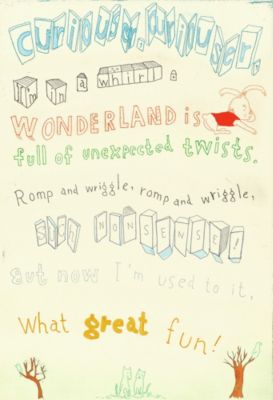 Curiouser, curiouser,
I'm in a whirl!
WONDERLAND is
full of unexpected twists.
Romp and wriggle, romp and wriggle,
SUCH NONSENSE!
But now I'm used to it,
What great fun!